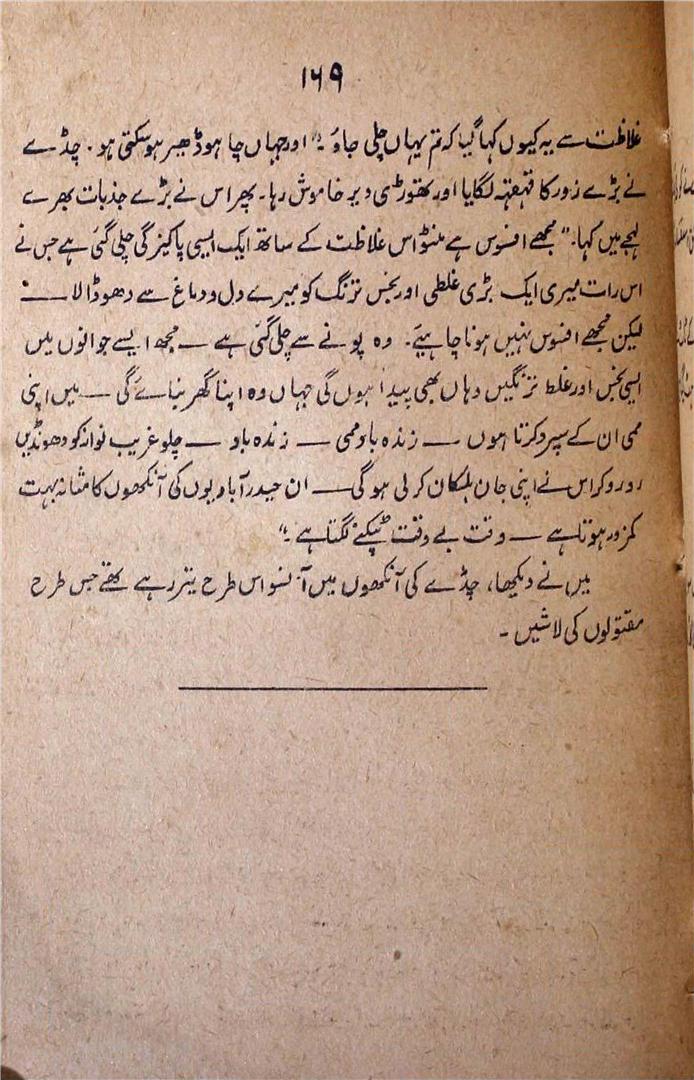 ۱۶۹
غلاظت سے یہ کیوں کہا گیا کہ تم یہاں چلی جاؤ۔" اور جہاں چاہو ڈھیر ہو سکتی ہو۔ چڈے
نے بڑے زور کا قہقہہ لگایا اور تھوڑی دیر خاموش رہا۔ پھر اس نے بڑے جذبات بھرے
لہجے میں کہا۔ "مجھے افسوس ہے منٹو اس غلاظت کے ساتھ ایک ایسی پاکیزگی چلی گئی ہے جس نے
اس رات میری ایک بڑی غلطی اور نجس ترنگ کو میرے دل و دماغ سے دھو ڈالا —
لیکن مجھے افسوس نہیں ہونا چاہیئے۔ وہ پونے سے چلی گئی ہے — مجھ ایسے جوانوں میں
ایسی نجس اور غلط ترنگیں وہاں بھی پیدا ہوں گی جہاں وہ اپنا گھر بنائے گی — میں اپنی
ممی ان کے سپرد کرتا ہوں — زندہ باد ممی — زندہ باد — چلو غریب نواز کو ڈھونڈیں
رو رو کر اس نے اپنی جان ہلکان کر لی ہوگی — ان حیدرآبادیوں کی آنکھوں کا مثانہ بہت
کمزور ہوتا ہے — وقت بے وقت ٹپکنے لگتا ہے۔"
میں نے دیکھا، چڈے کی آنکھوں میں آنسو اس طرح تیر رہے تھے جس طرح
مقتولوں کی لاشیں۔